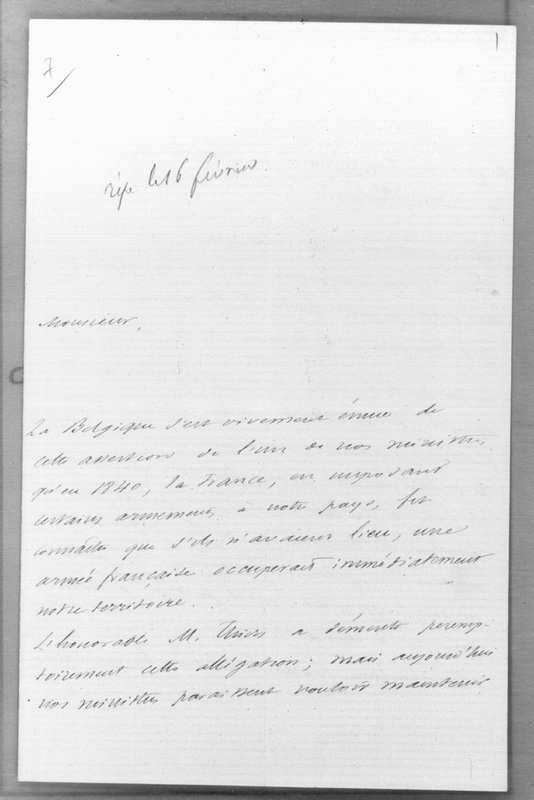 7
1
rép. le 16 février.
Monsieur,
La Belgique s'est vivement émue de
cette assertion de l'un de nos ministres,
qu'en 1840, la France, en imposant
certains armemens à notre pays, fit
connaître que s'ils n'avaient lieu, une
armée française occuperait immédiatement
notre territoire.
L'honorable M. Thiers a démenti péremp-
toirement cette allégation; mais aujourd'hui
nos ministres paraissent vouloir maintenir